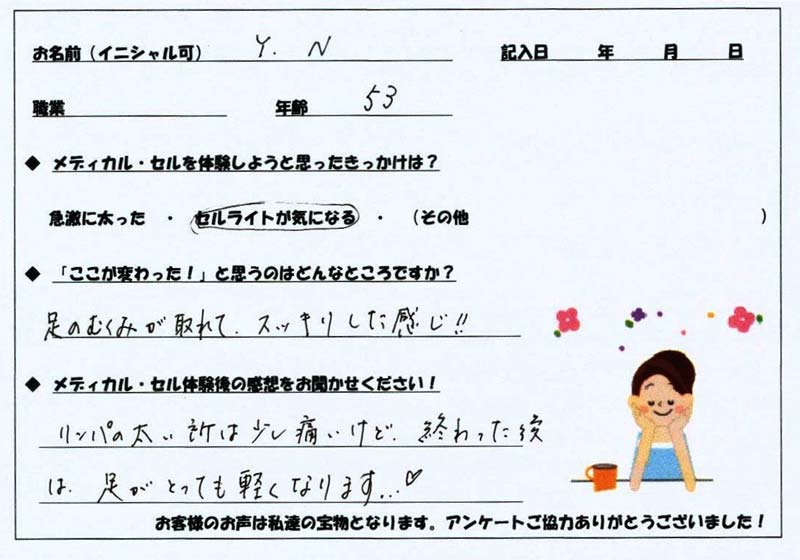 お名前（イニシャル可） Y. N 記入日 年 月 日
職業 年齢 53
◆ メディカル・セルを体験しようと思ったきっかけは？
急激に太った ・ セルライトが気になる ・ （その他 ）
◆ 「ここが変わった！」と思うのはどんなところですか？
足のむくみが取れて、スッキリした感じ!!
◆ メディカル・セル体験後の感想をお聞かせください！
リンパの太い所は少し痛いけど、終わった後
は、足がとっても軽くなります...♡
お客様のお声は私達の宝物となります。アンケートご協力ありがとうございました！